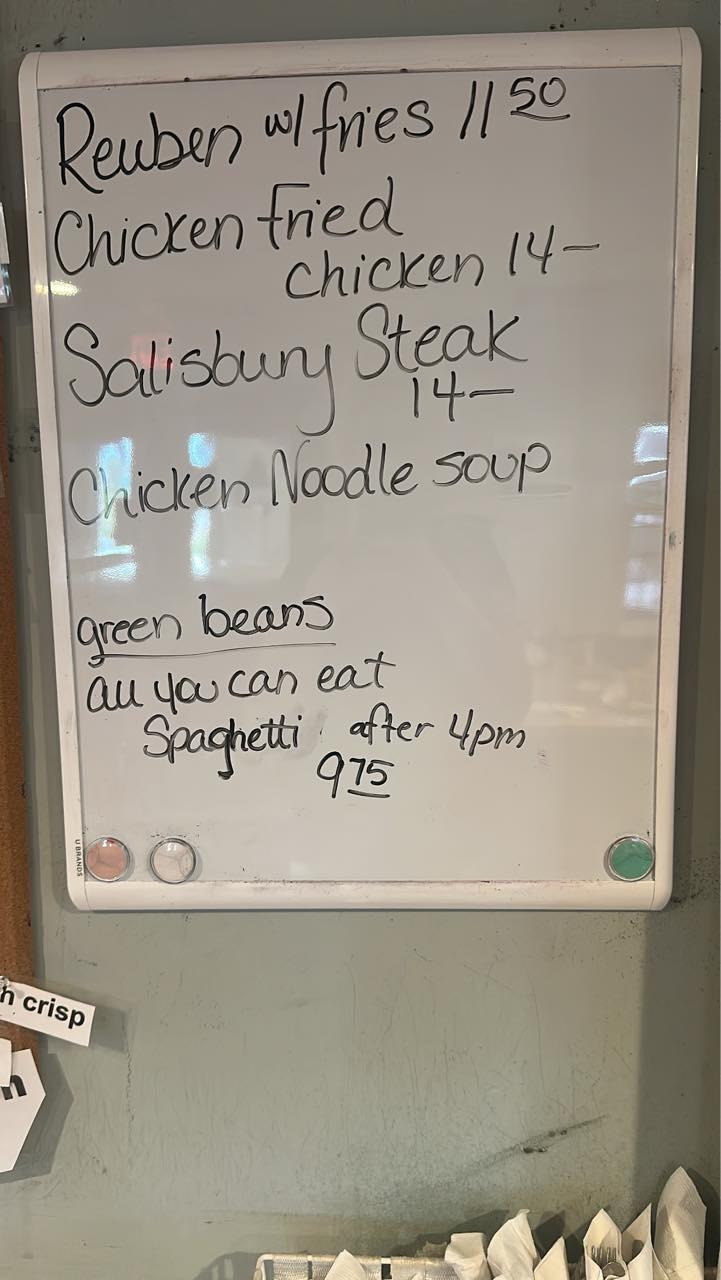 Reuben w/ fries 11 50
Chicken Fried
chicken 14—
Salisbury Steak
14—
Chicken Noodle soup
green beans
all you can eat
Spaghetti after 4pm
9 75
U BRANDS
h crisp
n